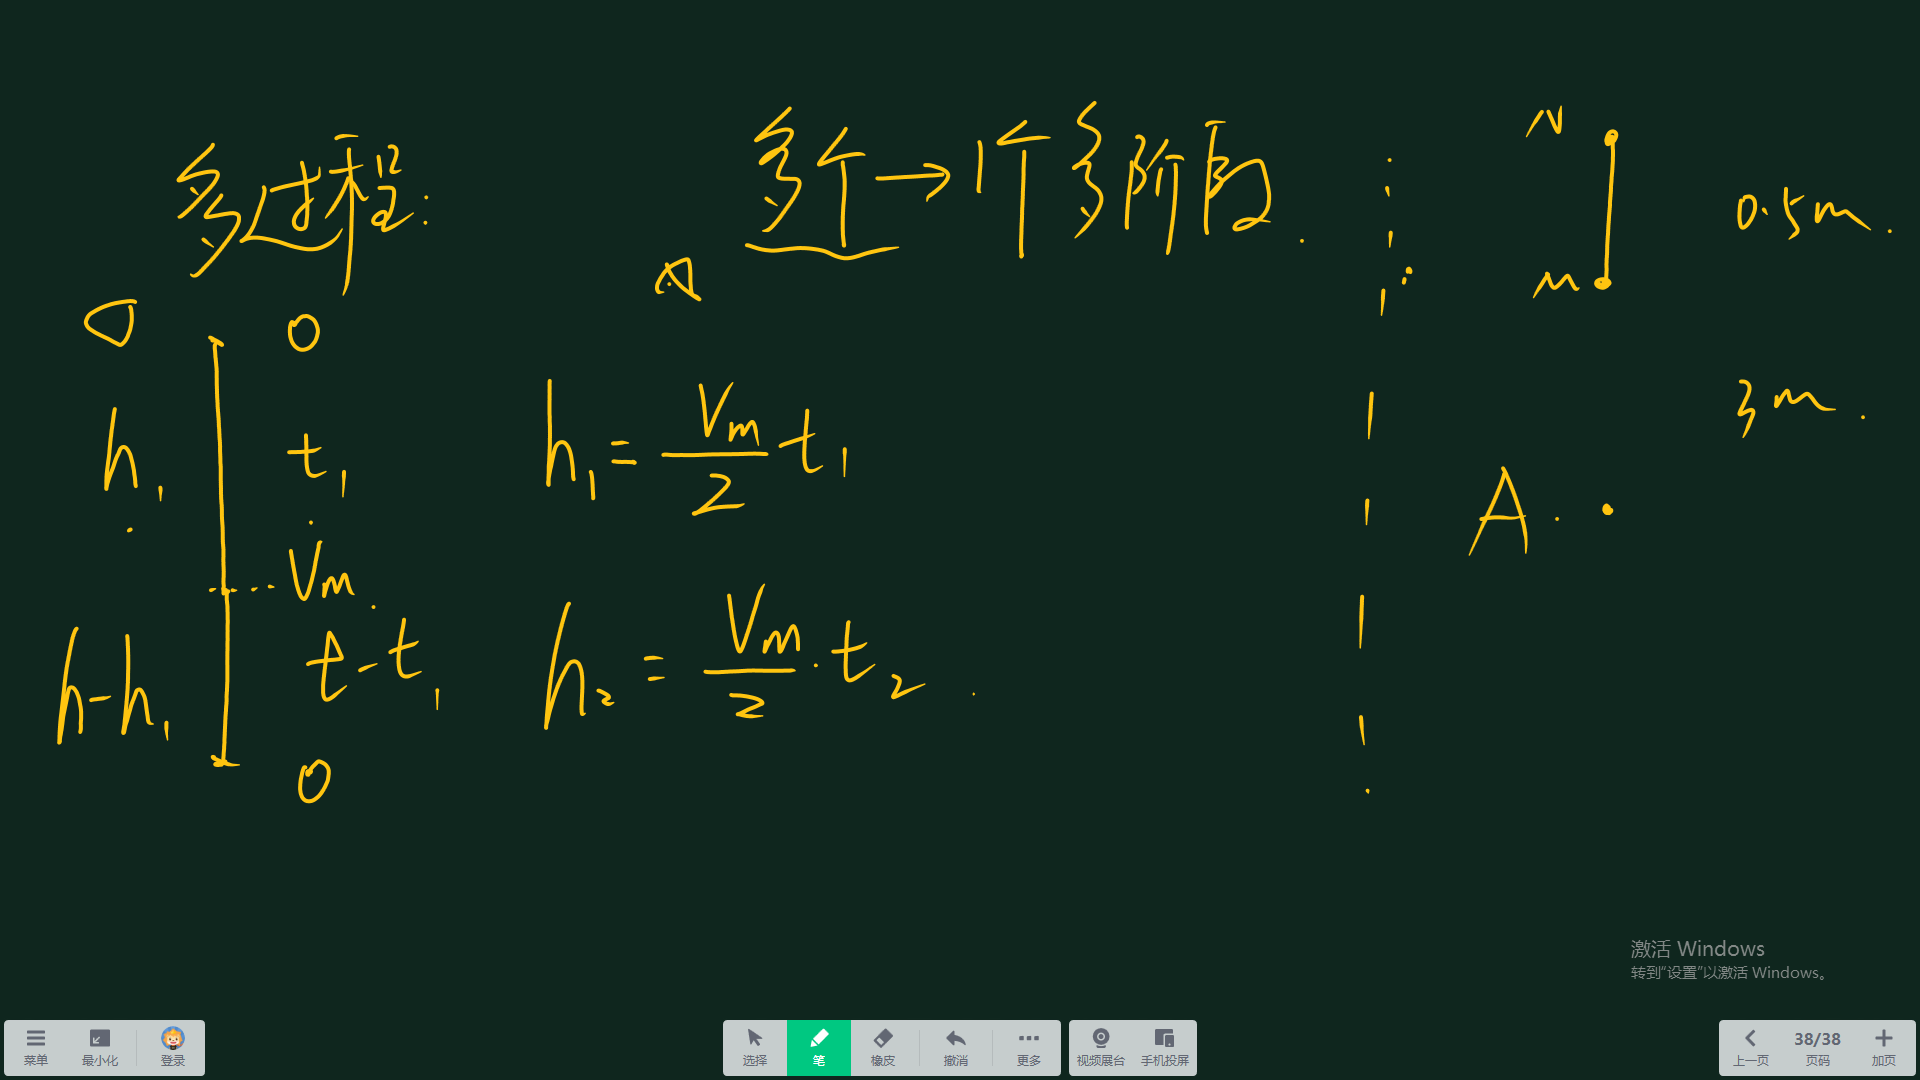 多过程:
多个→1个多阶段.
0
h₁
t₁
Vm
h-h₁
t-t₁
0
h₁=Vm/2 t₁
h₂=Vm/2·t₂
N
0.5m.
M
3m.
A.
激活 Windows
转到“设置”以激活 Windows。
菜单
最小化
登录
选择
笔
橡皮
撤消
更多
视频展台
手机投屏
上一页
38/38
页码
加页